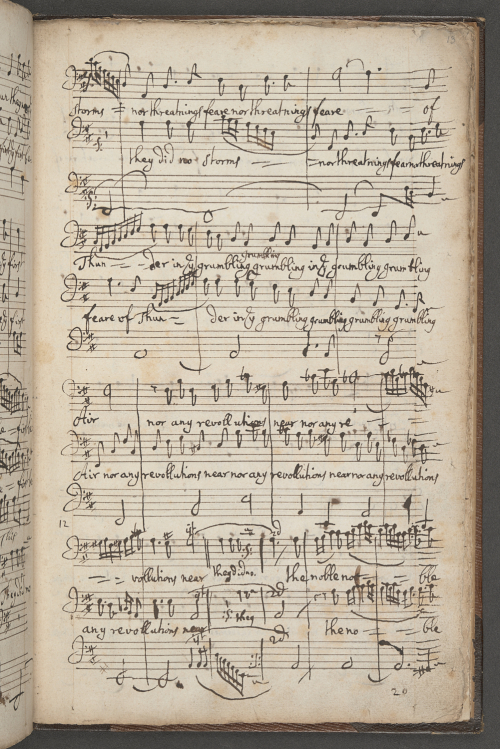 13
storms = nor threatnings feare nor threatnings feare = = of
they did no storms = = = nor threatnings fear nor threatnings
grumbling
Thun = = der in yᵉ grumbling grumbling in yᵉ grumbling grumbling
feare of Thun = der in yᵉ grumbling grumbling grumbling grumbling
Air nor any revollutions near nor any re
Air nor any revollutions near nor any revollutions near nor any revollutions
12
= = vollutions near they did no. the noble not = = ble
1st
2d
any revollutions near they the no = = = ble
1st
2d
20